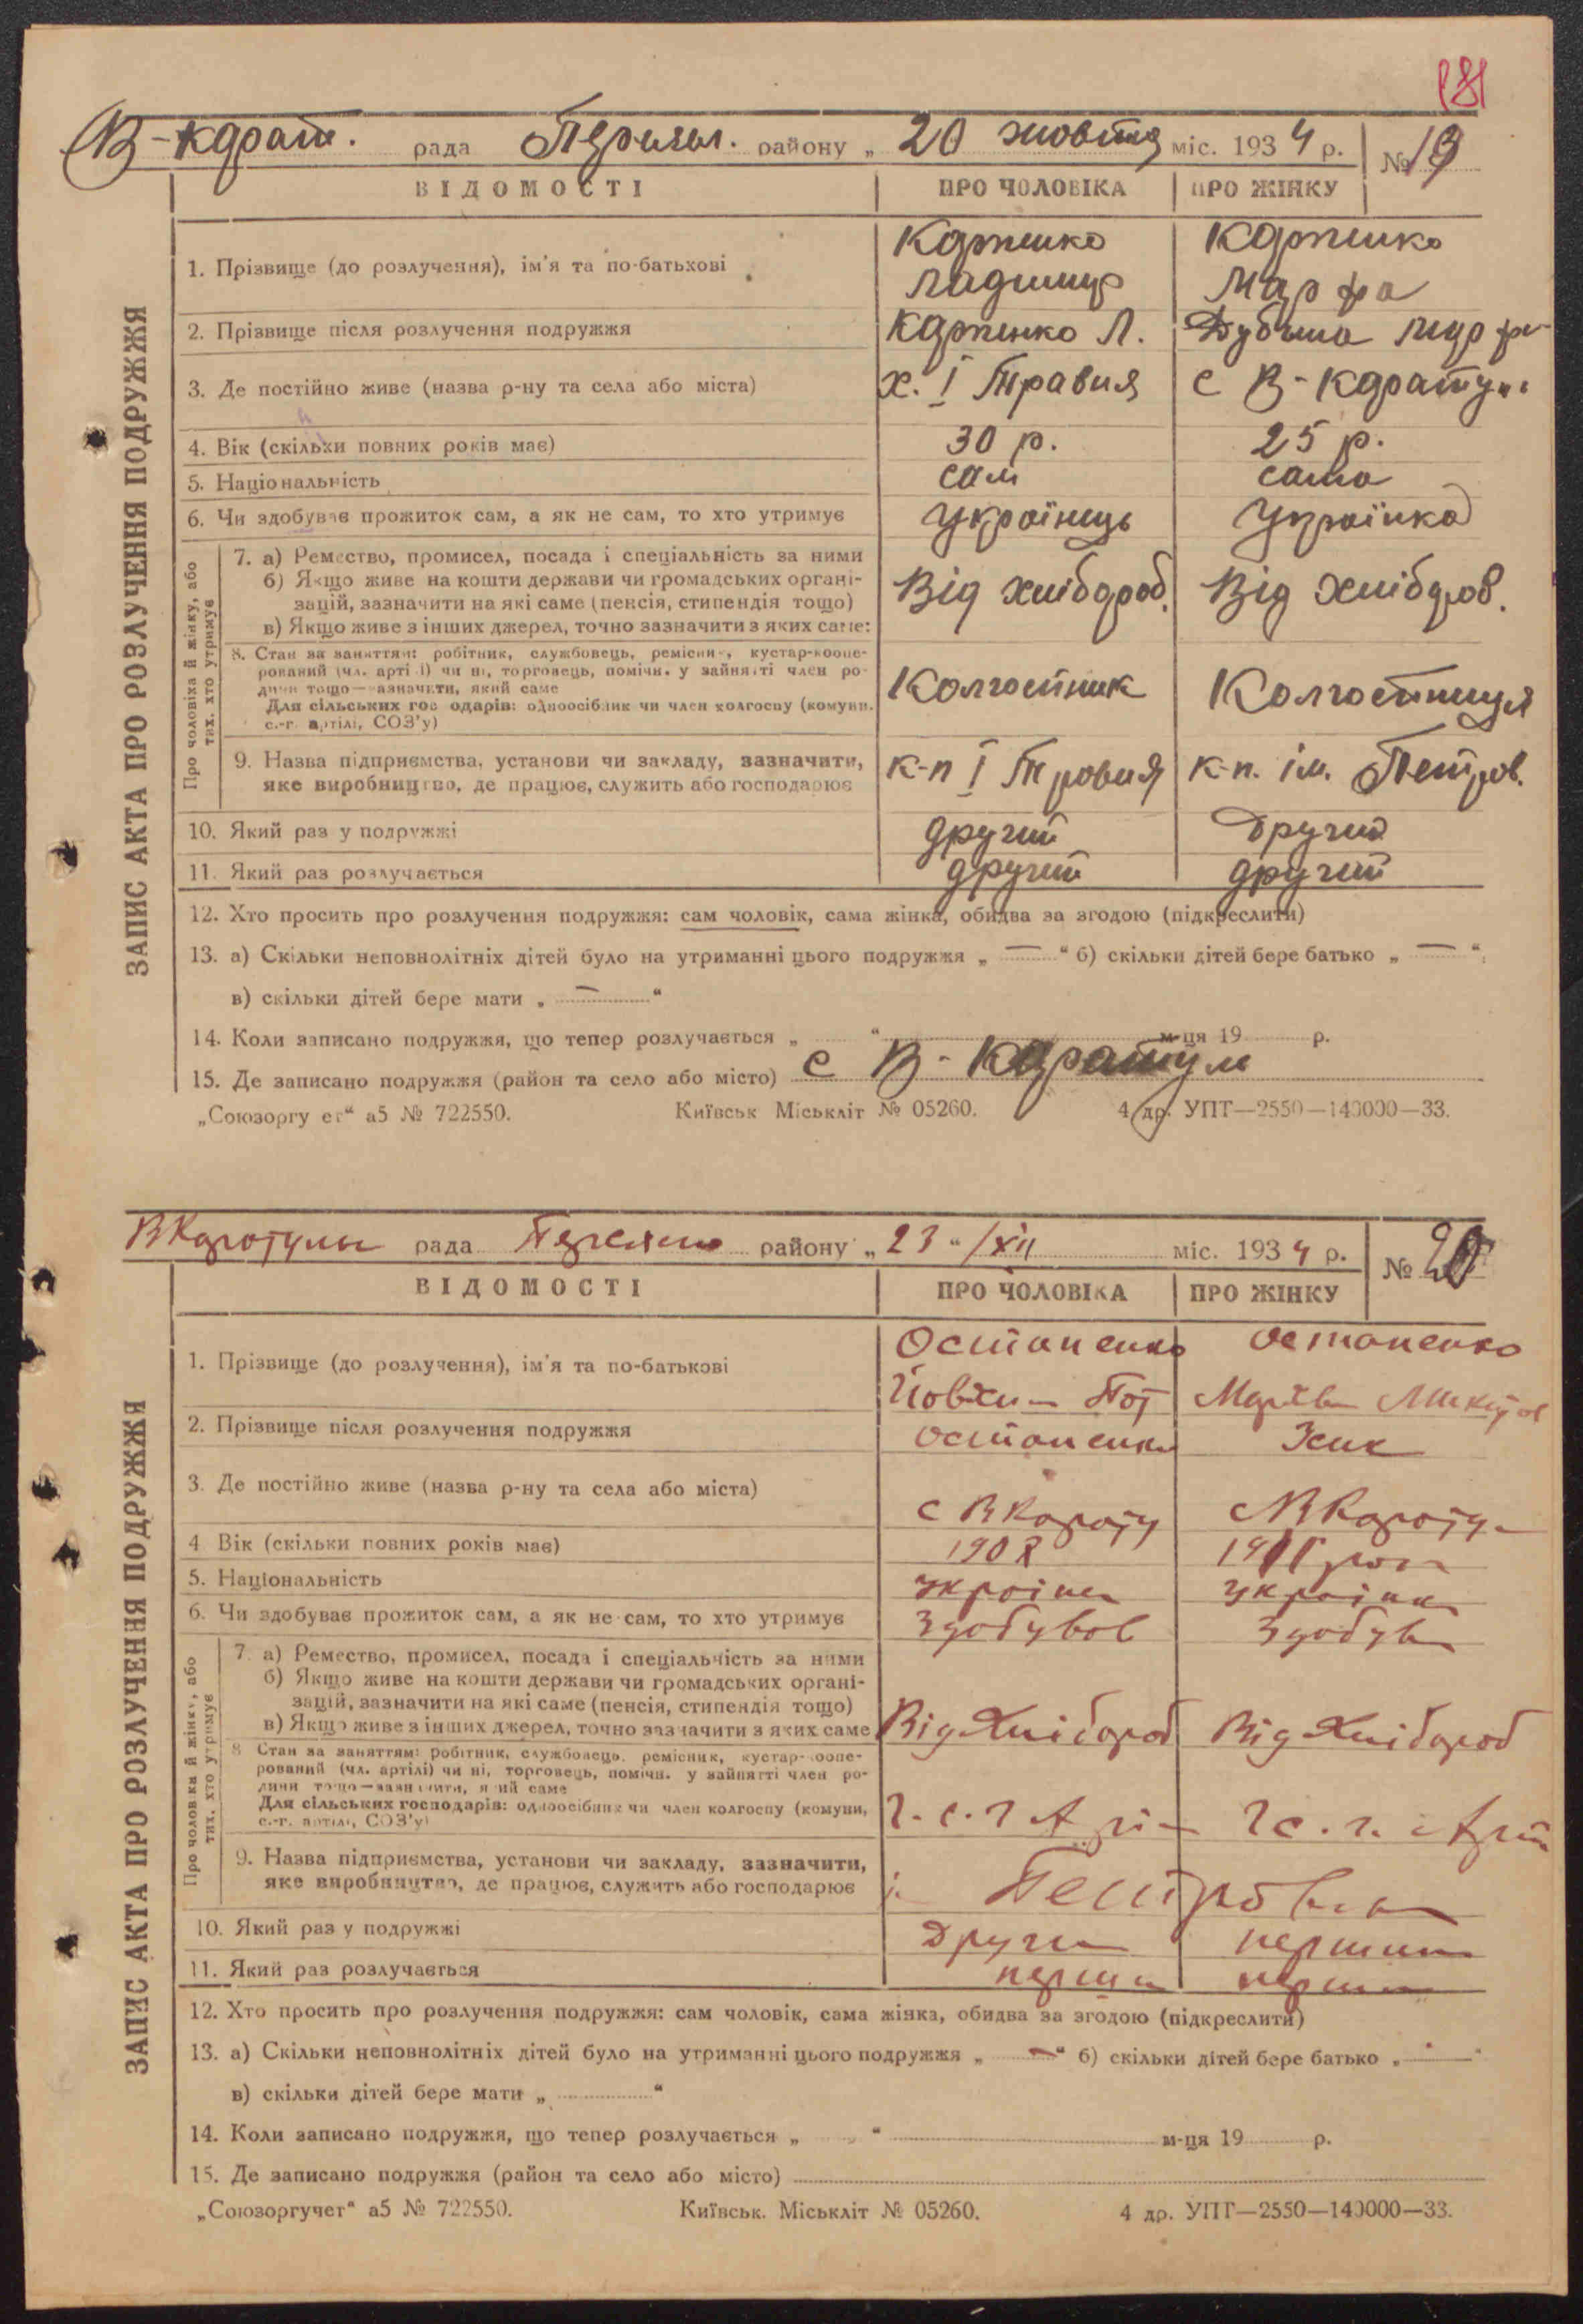 181
В-Карат. рада Переясл. району „ 20 жовтня міс. 1934 р. № 19
ВІДОМОСТІ ПРО ЧОЛОВІКА ПРО ЖІНКУ
ЗАПИС АКТА ПРО РОЗЛУЧЕННЯ ПОДРУЖЖЯ
1. Прізвище (до розлучення), ім'я та по-батькові Карпенко Карпенко
Ладимир Марфа
2. Прізвище після розлучення подружжя Карпенко Л. Марфа
3. Де постійно живе (назва р-ну та села або міста) х. І Травня с В-Каратул
4. Вік (скільки повних років має) 30 р. 25 р.
5. Національність сам сама
6. Чи здобував прожиток сам, а як не сам, то хто утримує Українець Українка
Про чоловіка й жінку, або тих, хто утримує
7. а) Ремество, промисел, посада і спеціальність за ними
б) Якщо живе на кошти держави чи громадських органі-
зацій, зазначити на які саме (пенсія, стипендія тощо) Від хлібороб. Від хлібороб.
в) Якщо живе з інших джерел, точно зазначити з яких саме:
8. Стан за заняттям: робітник, службовець, ремісник, кустар-коопе-
рований (чл. артілі) чи ні, торговець, помічн. у зайнятті член ро-
дини тощо—зазначити, який саме Колгоспник Колгоспниця
Для сільських господарів: одноосібник чи член колгоспу (комуни,
с.-г. артілі, СОЗ'у)
9. Назва підприємства, установи чи закладу, зазначити, к-п І Травня к-п. ім. Петров.
яке виробництво, де працює, служить або господарює
10. Який раз у подружжі другий другий
11. Який раз розлучається другий другий
12. Хто просить про розлучення подружжя: сам чоловік, сама жінка, обидва за згодою (підкреслити)
13. а) Скільки неповнолітніх дітей було на утриманні цього подружжя „ — “ б) скільки дітей бере батько „ — “;
в) скільки дітей бере мати „ — “
14. Коли записано подружжя, що тепер розлучається „ “ м-ця 19 р.
15. Де записано подружжя (район та село або місто) с В-Каратули
„Союзоргучет“ а5 № 722550. Київськ Міськліт № 05260. 4 др. УПТ—2550—140000—33.
рада району „ 23 “ /XII міс. 1934 р. № 20
ВІДОМОСТІ ПРО ЧОЛОВІКА ПРО ЖІНКУ
ЗАПИС АКТА ПРО РОЗЛУЧЕННЯ ПОДРУЖЖЯ
1. Прізвище (до розлучення), ім'я та по-батькові Остапенко Остапенко
2. Прізвище після розлучення подружжя Остапенко Усик
3. Де постійно живе (назва р-ну та села або міста) с В Карату
4 Вік (скільки повних років має) 1908
5. Національність
6. Чи здобував прожиток сам, а як не сам, то хто утримує Здобував
Про чоловіка й жінку, або тих, хто утримує
7. а) Ремество, промисел, посада і спеціальність за ними
б) Якщо живе на кошти держави чи громадських органі-
зацій, зазначити на які саме (пенсія, стипендія тощо)
в) Якщо живе з інших джерел, точно зазначити з яких саме Від Хлібороб Від Хлібороб
8 Стан за заняттям: робітник, службовець, ремісник, кустар-коопе-
рований (чл. артілі) чи ні, торговець, помічн. у зайнятті член ро-
дини тощо—зазначити, який саме
Для сільських господарів: одноосібник чи член колгоспу (комуни,
с.-г. артілі, СОЗ'у)
9. Назва підприємства, установи чи закладу, зазначити,
яке виробництво, де працює, служить або господарює
10. Який раз у подружжі
11. Який раз розлучається
12. Хто просить про розлучення подружжя: сам чоловік, сама жінка, обидва за згодою (підкреслити)
13. а) Скільки неповнолітніх дітей було на утриманні цього подружжя „ — “ б) скільки дітей бере батько „ — “
в) скільки дітей бере мати „ “
14. Коли записано подружжя, що тепер розлучається „ “ м-ця 19 р.
15. Де записано подружжя (район та село або місто)
„Союзоргучет“ а5 № 722550. Київськ. Міськліт № 05260. 4 др. УПТ—2550—140000—33.